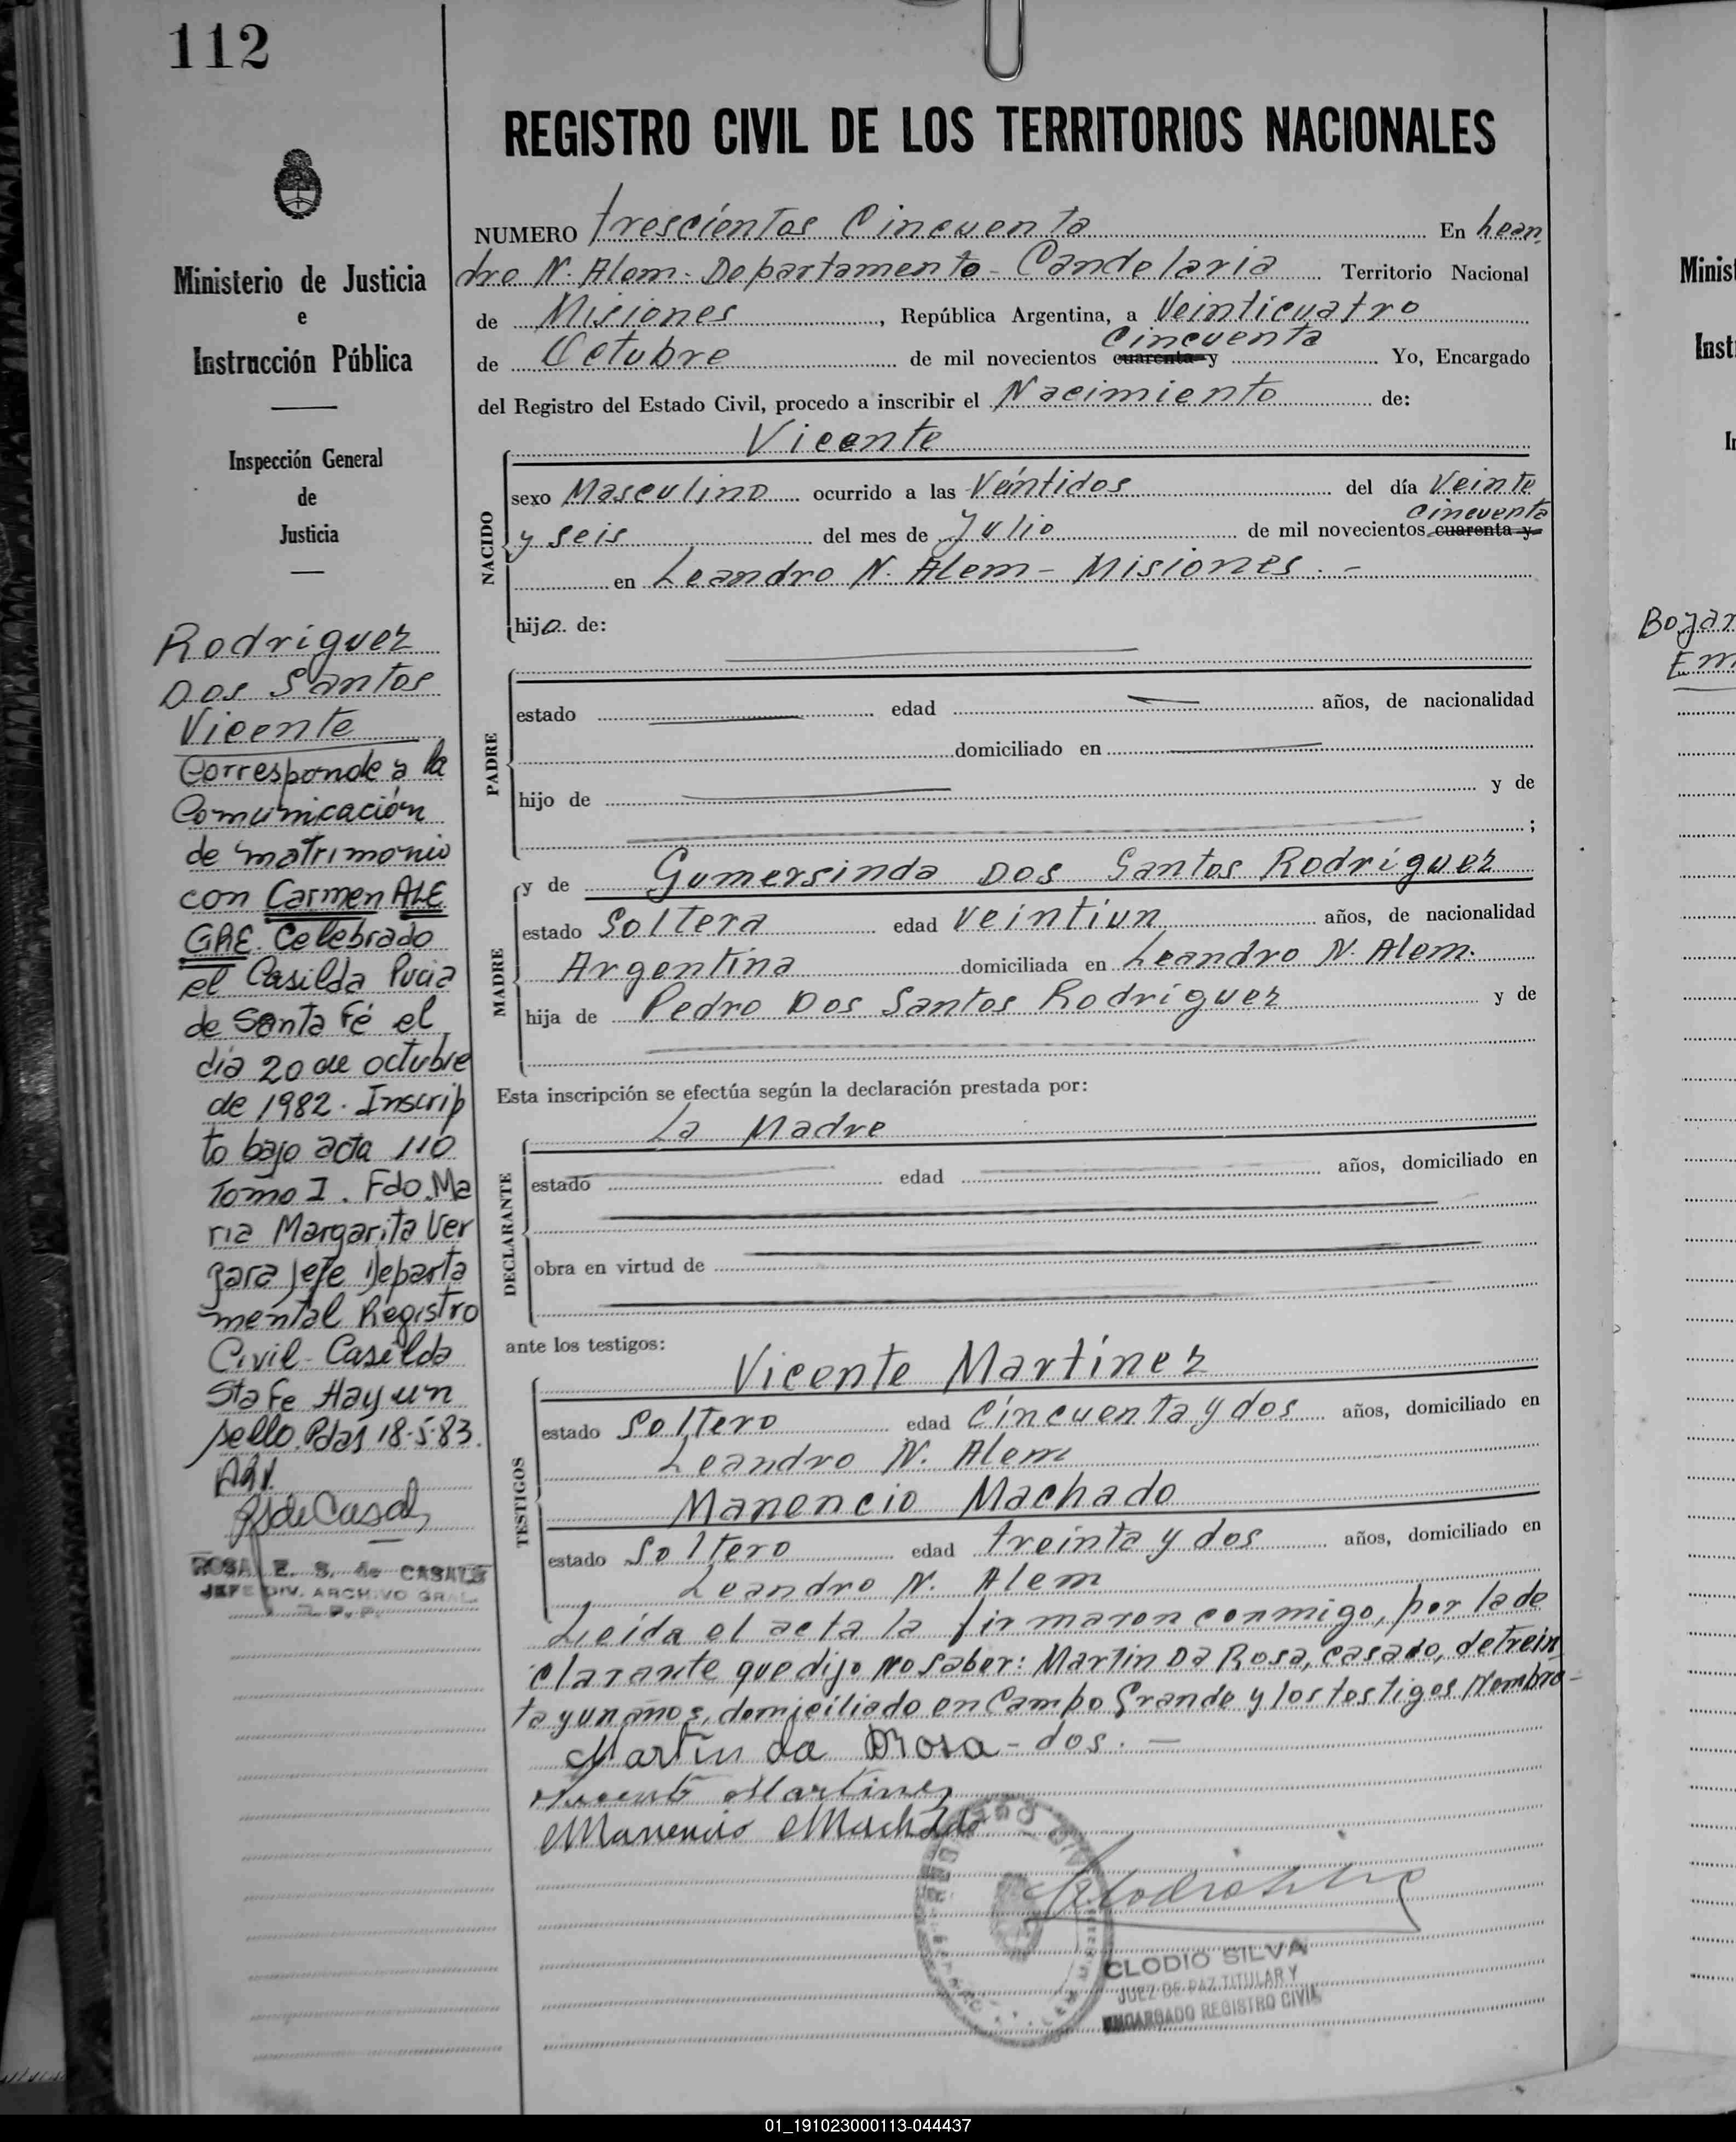 112
REGISTRO CIVIL DE LOS TERRITORIOS NACIONALES
Ministerio de Justicia
e
Instrucción Pública
Inspección General
de
Justicia
Rodriguez
Dos Santos
Vicente
Corresponde a la
Comunicación
de matrimonio
con Carmen ALE
GRE. Celebrado
el Casilda Pvcia
de Santa Fé el
día 20 de octubre
de 1982. Inscrip
to bajo acta 110
Tomo I. Fdo. Ma
ria Margarita Ver
gara Jefe Departa
mental Registro
Civil-Casilda
Sta Fe Hay un
sello. Pdas 18-5-83.
ROSA E. S. de CASALS
JEFE DIV. ARCHIVO GRAL.
R. P. P.
NUMERO trescientos Cincuenta En Lean
dro N. Alem. Departamento - Candelaria Territorio Nacional
de Misiones, República Argentina, a Veinticuatro
Cincuenta
de Octubre de mil novecientos cuarenta y Yo, Encargado
del Registro del Estado Civil, procedo a inscribir el Nacimiento de:
Vicente
NACIDO
sexo Masculino ocurrido a las Veintidos del día Veinte
cincuenta
y seis del mes de Julio de mil novecientos cuarenta y
en Leandro N. Alem - Misiones. -
hijo de:
PADRE
estado edad años, de nacionalidad
domiciliado en
hijo de y de
;
y de Gumersinda Dos Santos Rodriguez
MADRE
estado Soltera edad Veintiun años, de nacionalidad
Argentina domiciliada en Leandro N. Alem.
hija de Pedro Dos Santos Rodriguez y de
Esta inscripción se efectúa según la declaración prestada por:
La Madre
DECLARANTE
estado edad años, domiciliado en
obra en virtud de
ante los testigos:
Vicente Martinez
TESTIGOS
estado Soltero edad Cincuenta y dos años, domiciliado en
Leandro N. Alem
Manencio Machado
estado Soltero edad treinta y dos años, domiciliado en
Leandro N. Alem
Leída el acta la firmaron conmigo, por la de
clarante que dijo no saber: Martin Da Rosa, casado, de trein
ta y un años, domiciliado en Campo Grande y los testigos Nombra-
Martin da Rosa - dos. -
Vicente Martinez
Manencio Machado
CLODIO SILVA
JUEZ DE PAZ TITULAR Y
ENCARGADO REGISTRO CIVIL
Minist
Inst
I
Bojar
Em
01_191023000113-044437